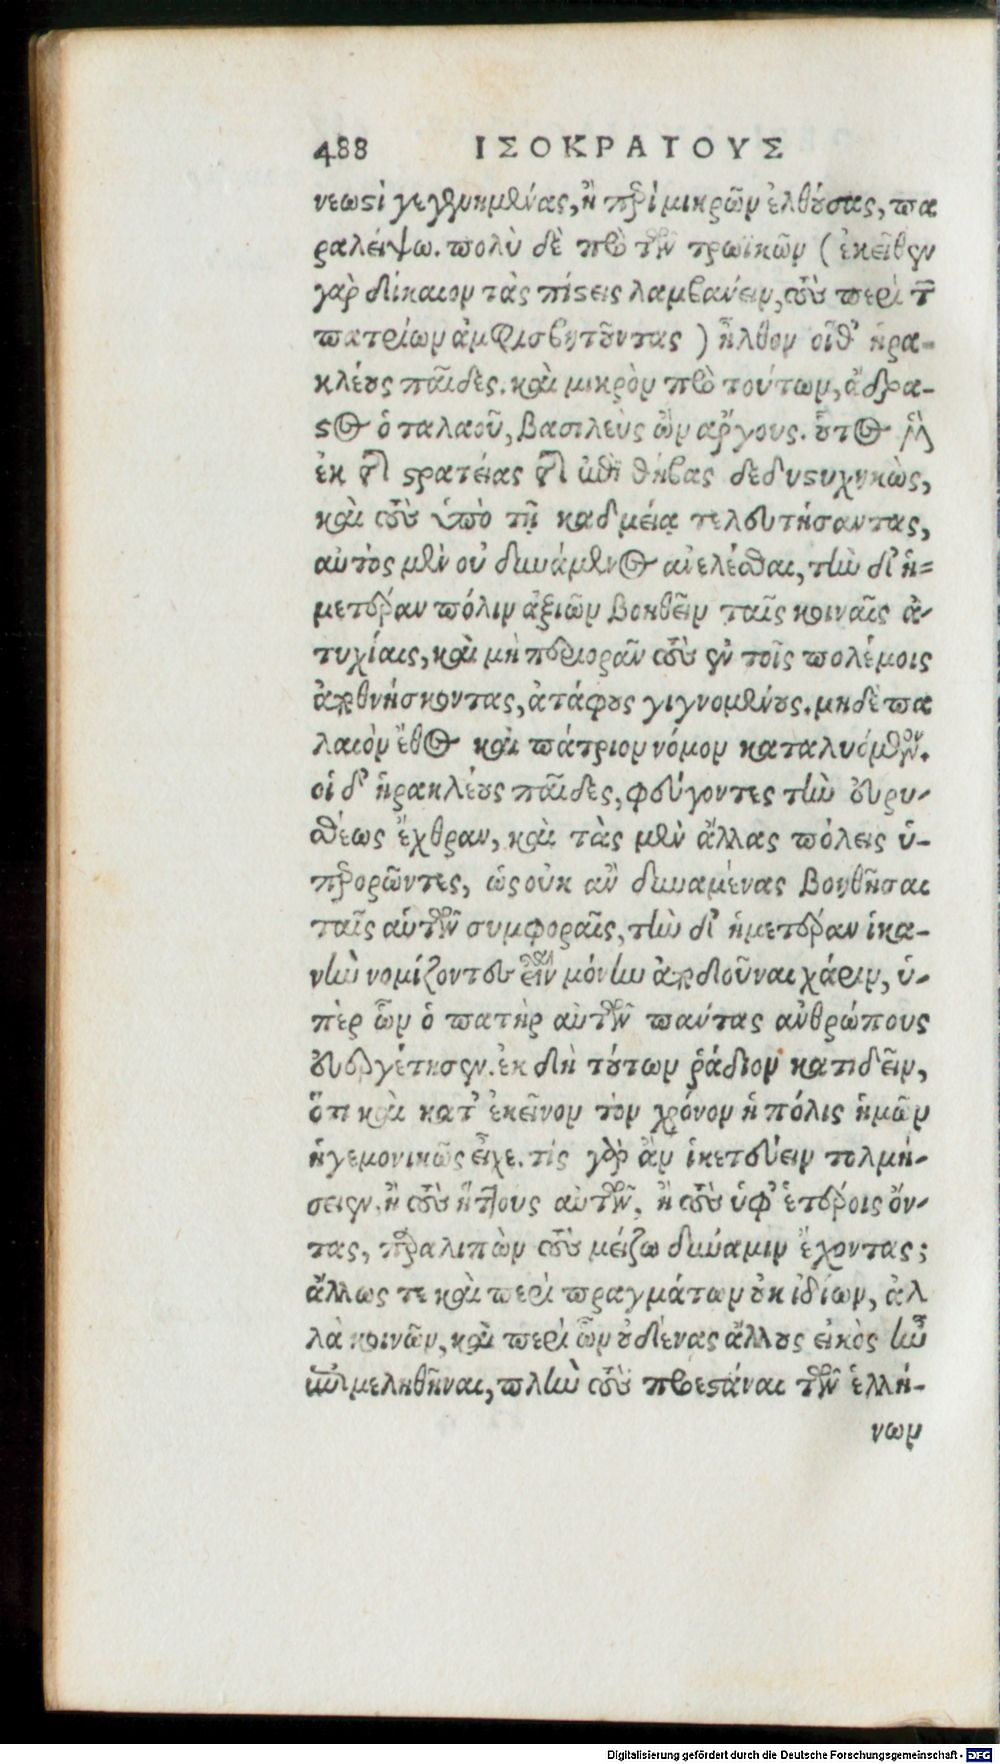 488 ΙΣΟΚΡΑΤΟΥΣ
νεωστὶ γεγενημένας, ἢ περὶ μικρῶν ἐλθούσας, πα
ραλείψω. πολὺ δὲ πρὸ τῶν τρωϊκῶν (ἐκεῖθεν
γὰρ δίκαιον τὰς πίστεις λαμβάνειν, τοὺς περὶ τῶν
πατρίων ἀμφισβητοῦντας) ἦλθον οἵθ' ἡρα-
κλέους παῖδες. καὶ μικρὸν πρὸ τούτων, ἄδρα-
στος ὁ ταλαοῦ, βασιλεὺς ὢν ἄργους. οὗτος μὲν
ἐκ τῆς στρατείας τῆς ἐπὶ θήβας δεδυστυχηκὼς,
καὶ τοὺς ὑπὸ τῇ καδμείᾳ τελευτήσαντας,
αὐτὸς μὲν οὐ δυνάμενος ἀνελέσθαι, τὴν δ' ἡ-
μετέραν πόλιν ἀξιῶν βοηθεῖν ταῖς κοιναῖς ἀ-
τυχίαις, καὶ μὴ περιορᾶν τοὺς ἐν τοῖς πολέμοις
ἀποθνήσκοντας, ἀτάφους γιγνομένους. μηδὲ πα
λαιὸν ἔθος καὶ πάτριον νόμον καταλυόμενον.
οἱ δ' ἡρακλέους παῖδες, φεύγοντες τὴν εὐρυ-
σθέως ἔχθραν, καὶ τὰς μὲν ἄλλας πόλεις ὑ-
περορῶντες, ὡς οὐκ ἂν δυναμένας βοηθῆσαι
ταῖς αὑτῶν συμφοραῖς, τὴν δ' ἡμετέραν ἱκα-
νὴν νομίζοντες εἶναι μόνην ἀποδοῦναι χάριν, ὑ-
πὲρ ὧν ὁ πατὴρ αὐτῶν πάντας ἀνθρώπους
εὐεργέτησεν. ἐκ δὴ τούτων ῥάδιον κατιδεῖν,
ὅτι καὶ κατ' ἐκεῖνον τὸν χρόνον ἡ πόλις ἡμῶν
ἡγεμονικῶς εἶχε. τίς γὰρ ἂν ἱκετεύειν τολμή-
σειεν, ἢ τοὺς ἥττους αὐτῶν, ἢ τοὺς ὑφ' ἑτέροις ὄν-
τας, παραλιπὼν τοὺς μείζω δύναμιν ἔχοντας;
ἄλλως τε καὶ περὶ πραγμάτων οὐκ ἰδίων, ἀλ
λὰ κοινῶν, καὶ περὶ ὧν οὐδένας ἄλλους εἰκὸς ἦν
ἐπιμεληθῆναι, πλὴν τοὺς προεστάναι τῶν ἑλλή-
νων
Digitalisierung gefördert durch die Deutsche Forschungsgemeinschaft - DFG